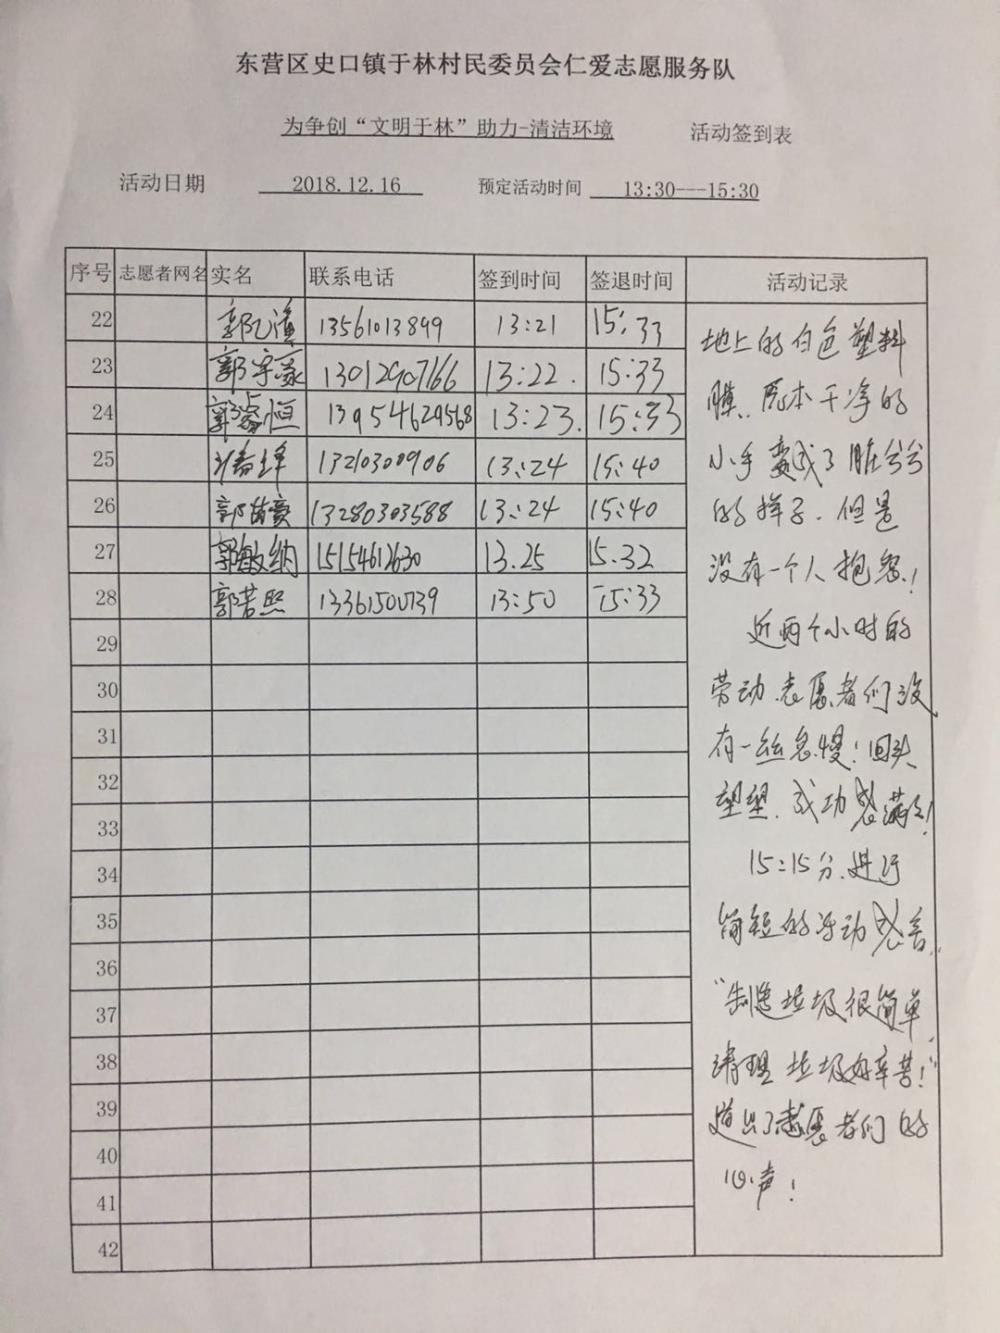 东营区史口镇于林村民委员会仁爱志愿服务队
为争创“文明于林”助力-清洁环境 活动签到表
活动日期 2018.12.16 预定活动时间 13:30---15:30
序号 志愿者网名 实名 联系电话 签到时间 签退时间 活动记录
22 13561013899 13:21 15:33
23 郭宇豪 13012907166 13:22. 15:33
24 郭睿恒 13954629568 13:23. 15:33
25 13210300906 13:24 15:40
26 郭苗豪 13280303588 13:24 15:40
27 郭敏纳 15154612630 13.25 15.32
28 郭若熙 13361500739 13:50 15:33
29
30
31
32
33
34
35
36
37
38
39
40
41
42
地上的白色塑料
膜.原本干净的
小手变成了脏兮兮
的样子.但是
没有一个人抱怨!
近两个小时的
劳动.志愿者们没
有一丝怠慢!回头
望望.成功感满满!
15:15分.进行
简短的活动感言
“制造垃圾很简单,
清理垃圾好辛苦!”
道出了志愿者们的
心声!